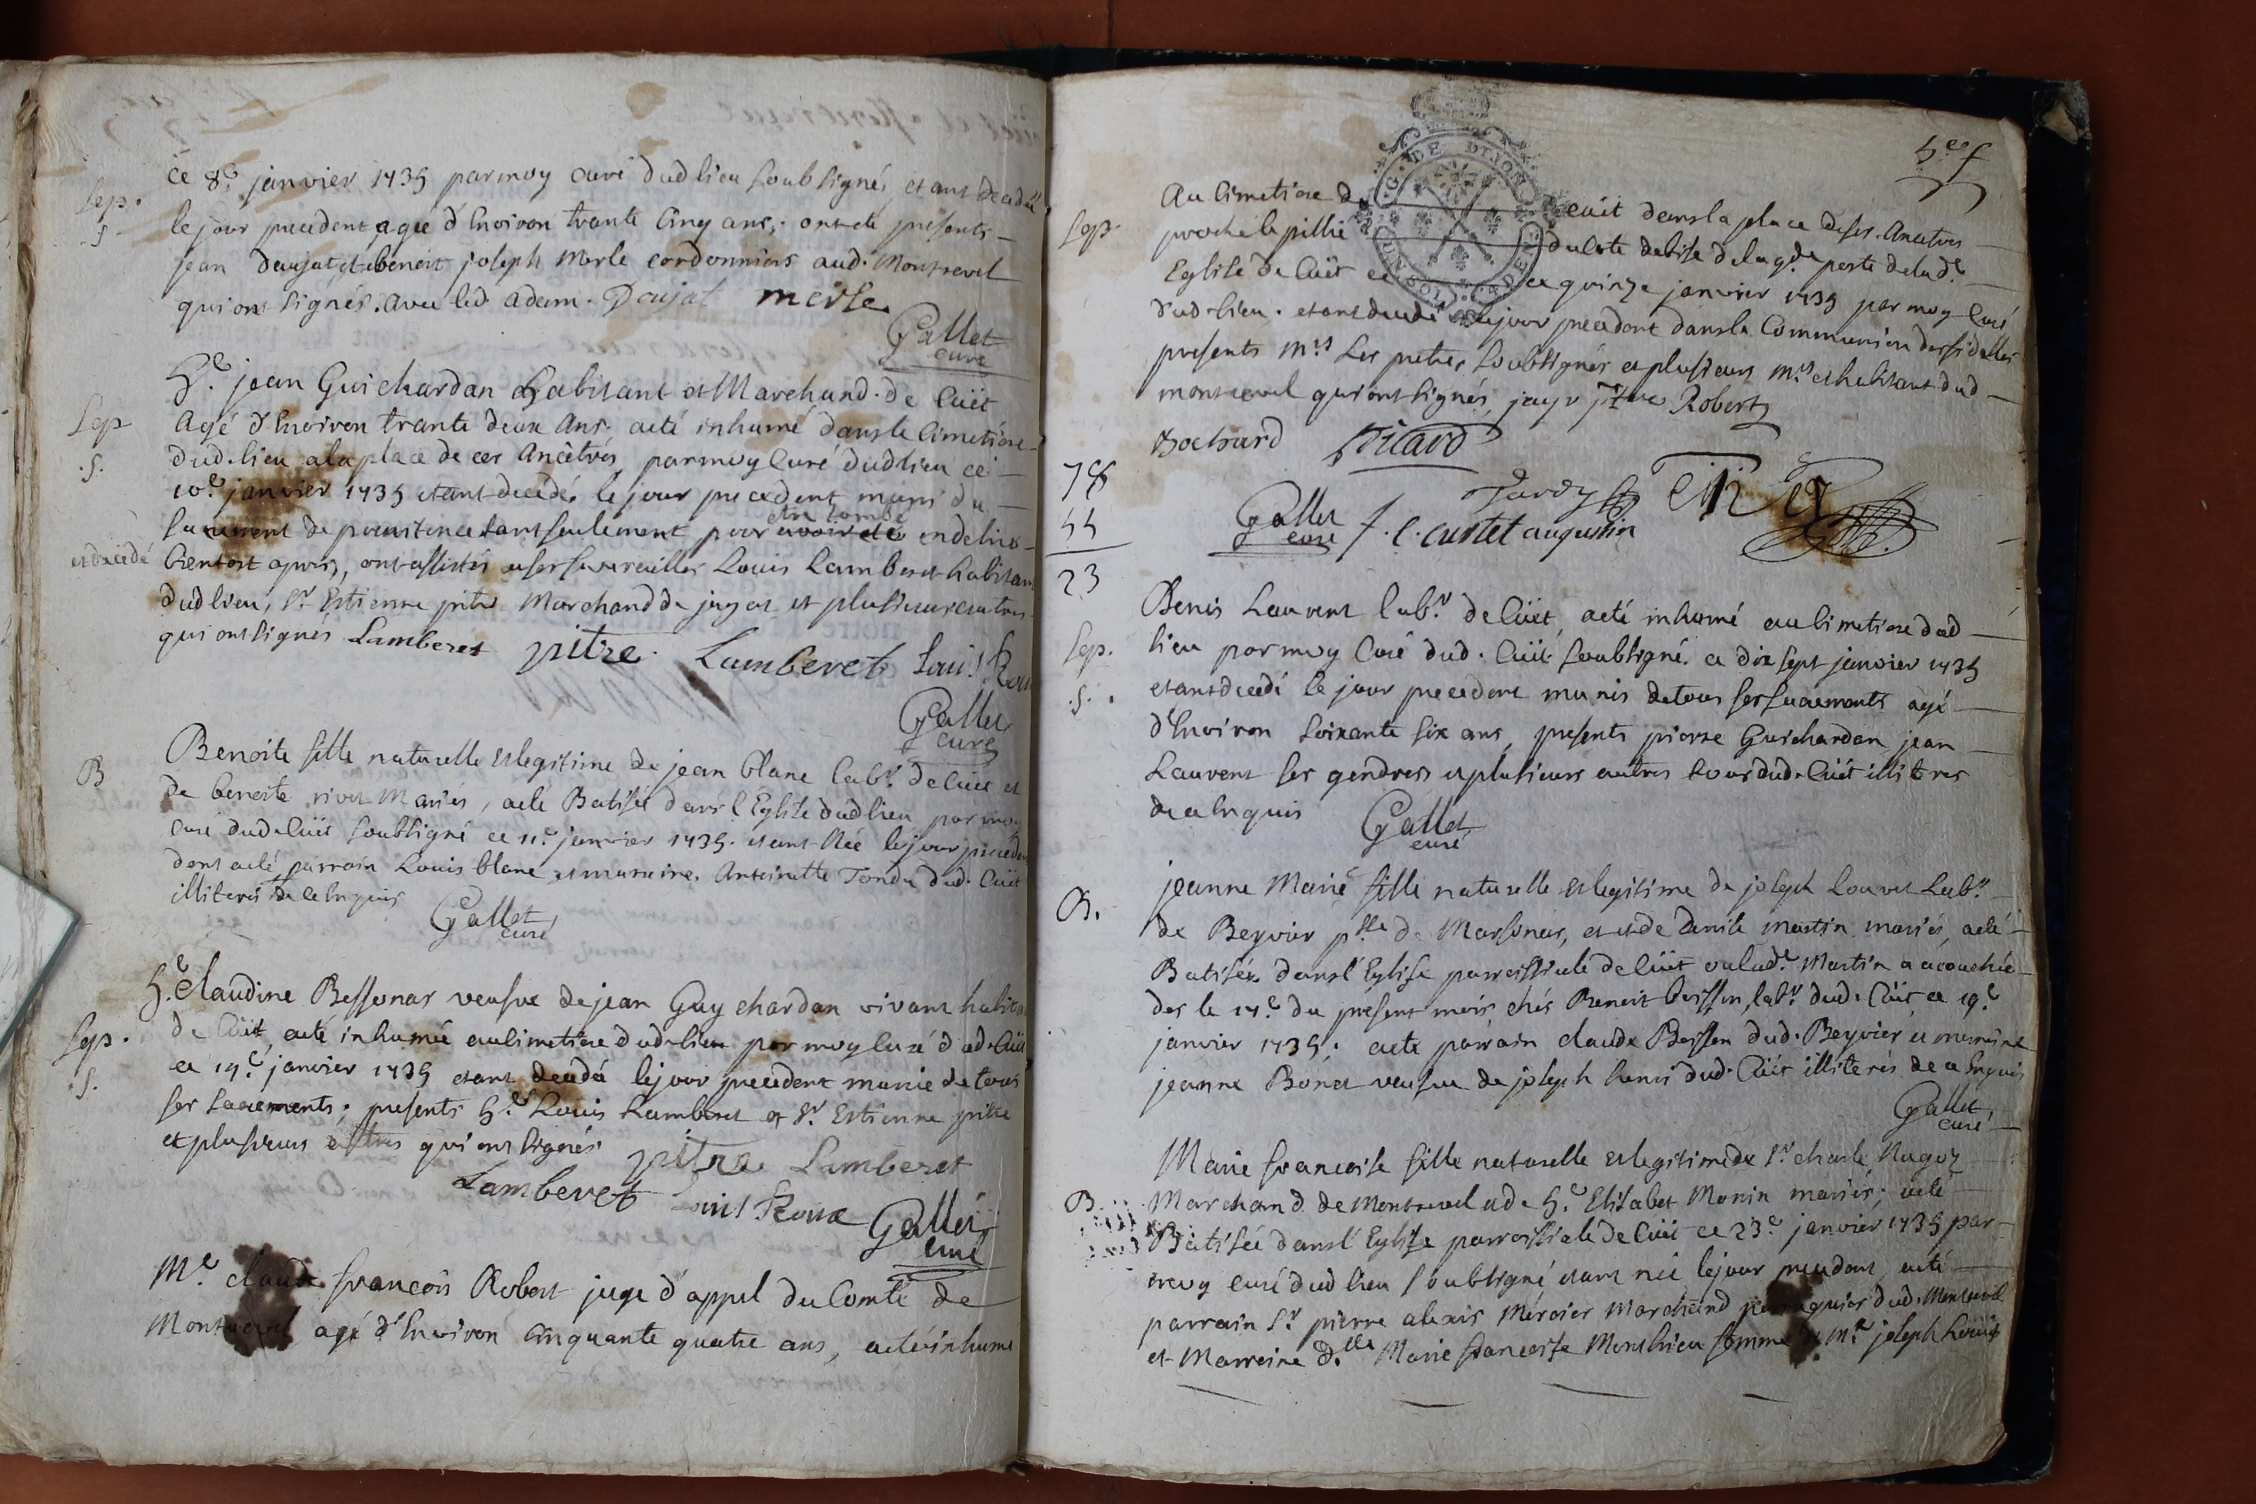 Sep.
S
ce 8e. janvier 1735 par moy curé dud lieu soubsignés etant decedé
le jour precedent, agée d'environ trante cinq ans, ont eté présents
jean daujat et benoit joseph Merle cordonniers aud. Montrevel
qui ont signés. avec led adam. Daujat merle
Gallet
curé
Sep
.S.
he. jean Guichardan habitant et Marchand de Cüet
Agé d'environ trante deux Ans. a eté inhumé dans le Cimetiére
dud. lieu a la place de ces Ancêtres par moy Curé dud lieu ce
10e janvier 1735 etant decedé le jour precedent munis du
sacrement de penitence tant seulement pour avoir eté en delire
etre tombé
et decedé
bientost apres, ont assistés a ses funerailles Louis Lamberet habitant
dud lieu, Sr. Estienne pitre Marchand de jayat et plusieurs autres
qui ont signés Lamberet pitre Lamberet Loui! Roux
Gallet
curé
B
Benoite fille naturelle et legitime de jean blanc labr. de Cüet et
de benoite rivet Mariés, a eté Batisée dans l'Eglise dud lieu par moy
Curé dud. Cüet soubsigné ce 11e. janvier 1735. etant Née le jour precedent
dont a eté parrain Louis blanc et marraine Antoinette Tondu dud. Cüet
illiterés de ce Enquis
Gallet
curé
Sep.
.S.
he. Claudine Bessonar veufve de jean Guychardan vivant habitant
de Cüet, a eté inhumée au Cimetiére dud lieu par moy Curé dud. Cüet
ce 14e. janvier 1735 etant decedé le jour precedent munie de tous
ses Sacrements; presents he. Louis Lamberet et Sr. Estienne pitre
et plusieurs autres qui ont signés.
pitre Lamberet
Lamberet Louis Roux Gallet
curé
Me. claude francois Robert juge d'appel du Comté de
Montrevel agé d'Environ Cinquante quatre ans, a eté inhumé
Sep.
Au Cimetiére de Cüet dans la place de ses Ancetres
proche le pillié du coté de bise de la gde. porte de lade.
Eglise de Cüet ce ce quinze janvier 1735 par moy Curé
dud. lieu. etant decedé le jour precedent dans la Communion des fidelles
presents Mrs. Les pretres soubsignés et plusieurs Mrs. et habitant dud
montrevel qui ont signés, Robert
Bochard picard
78
55
23
Gallet
curé f. c. custet augustin
Sep.
.S.
Benis Laurent labr. de Cüet, a eté inhumé au Cimetiére dud
lieu par moy Curé dud. Cüet soubsigné ce dix sept janvier 1735
etant decedé le jour precedent munis de tous ses sacrements agé
d'Environ soixante six ans, presents pierre Guichardan jean
Laurent ses gendres et plusieurs autres tous dud. Cüet illiteres
de ce Enquis
Gallet
curé
B.
jeanne Marie fille naturelle et legitime de joseph Louvet Labr.
de Beyvier psse. de Marsonas, et de denise martin mariés, a eté
Batisée dans l'Eglise parroissiale de Cüet ou lade. Martin a acouchée
des le 17e. du présent mois chés Benoit boisson, labr. dud. Cüet ce 19e.
janvier 1735; a eté parrain claude Boisson dud. Beyvier et marraine
jeanne Bonet veufve de joseph dud. Cüet illiterés de ce Enquis
Gallet
curé
B.
Marie francoise fille naturelle et legitime de Sr. charle Nugoz
Marchand de Montrevel et de he. Elisabet Monin mariés; a eté
Batisée dans l'Eglise parroissiale de Cüet ce 23e. janvier 1735 par
moy curé dud lieu soubsigné, etant née le jour precedent a eté
parrain Sr. pierre alexis Mercier Marchand dud. Montrevel
et Marreine dlle. Marie francoise Monthieu femme Me. joseph Louis